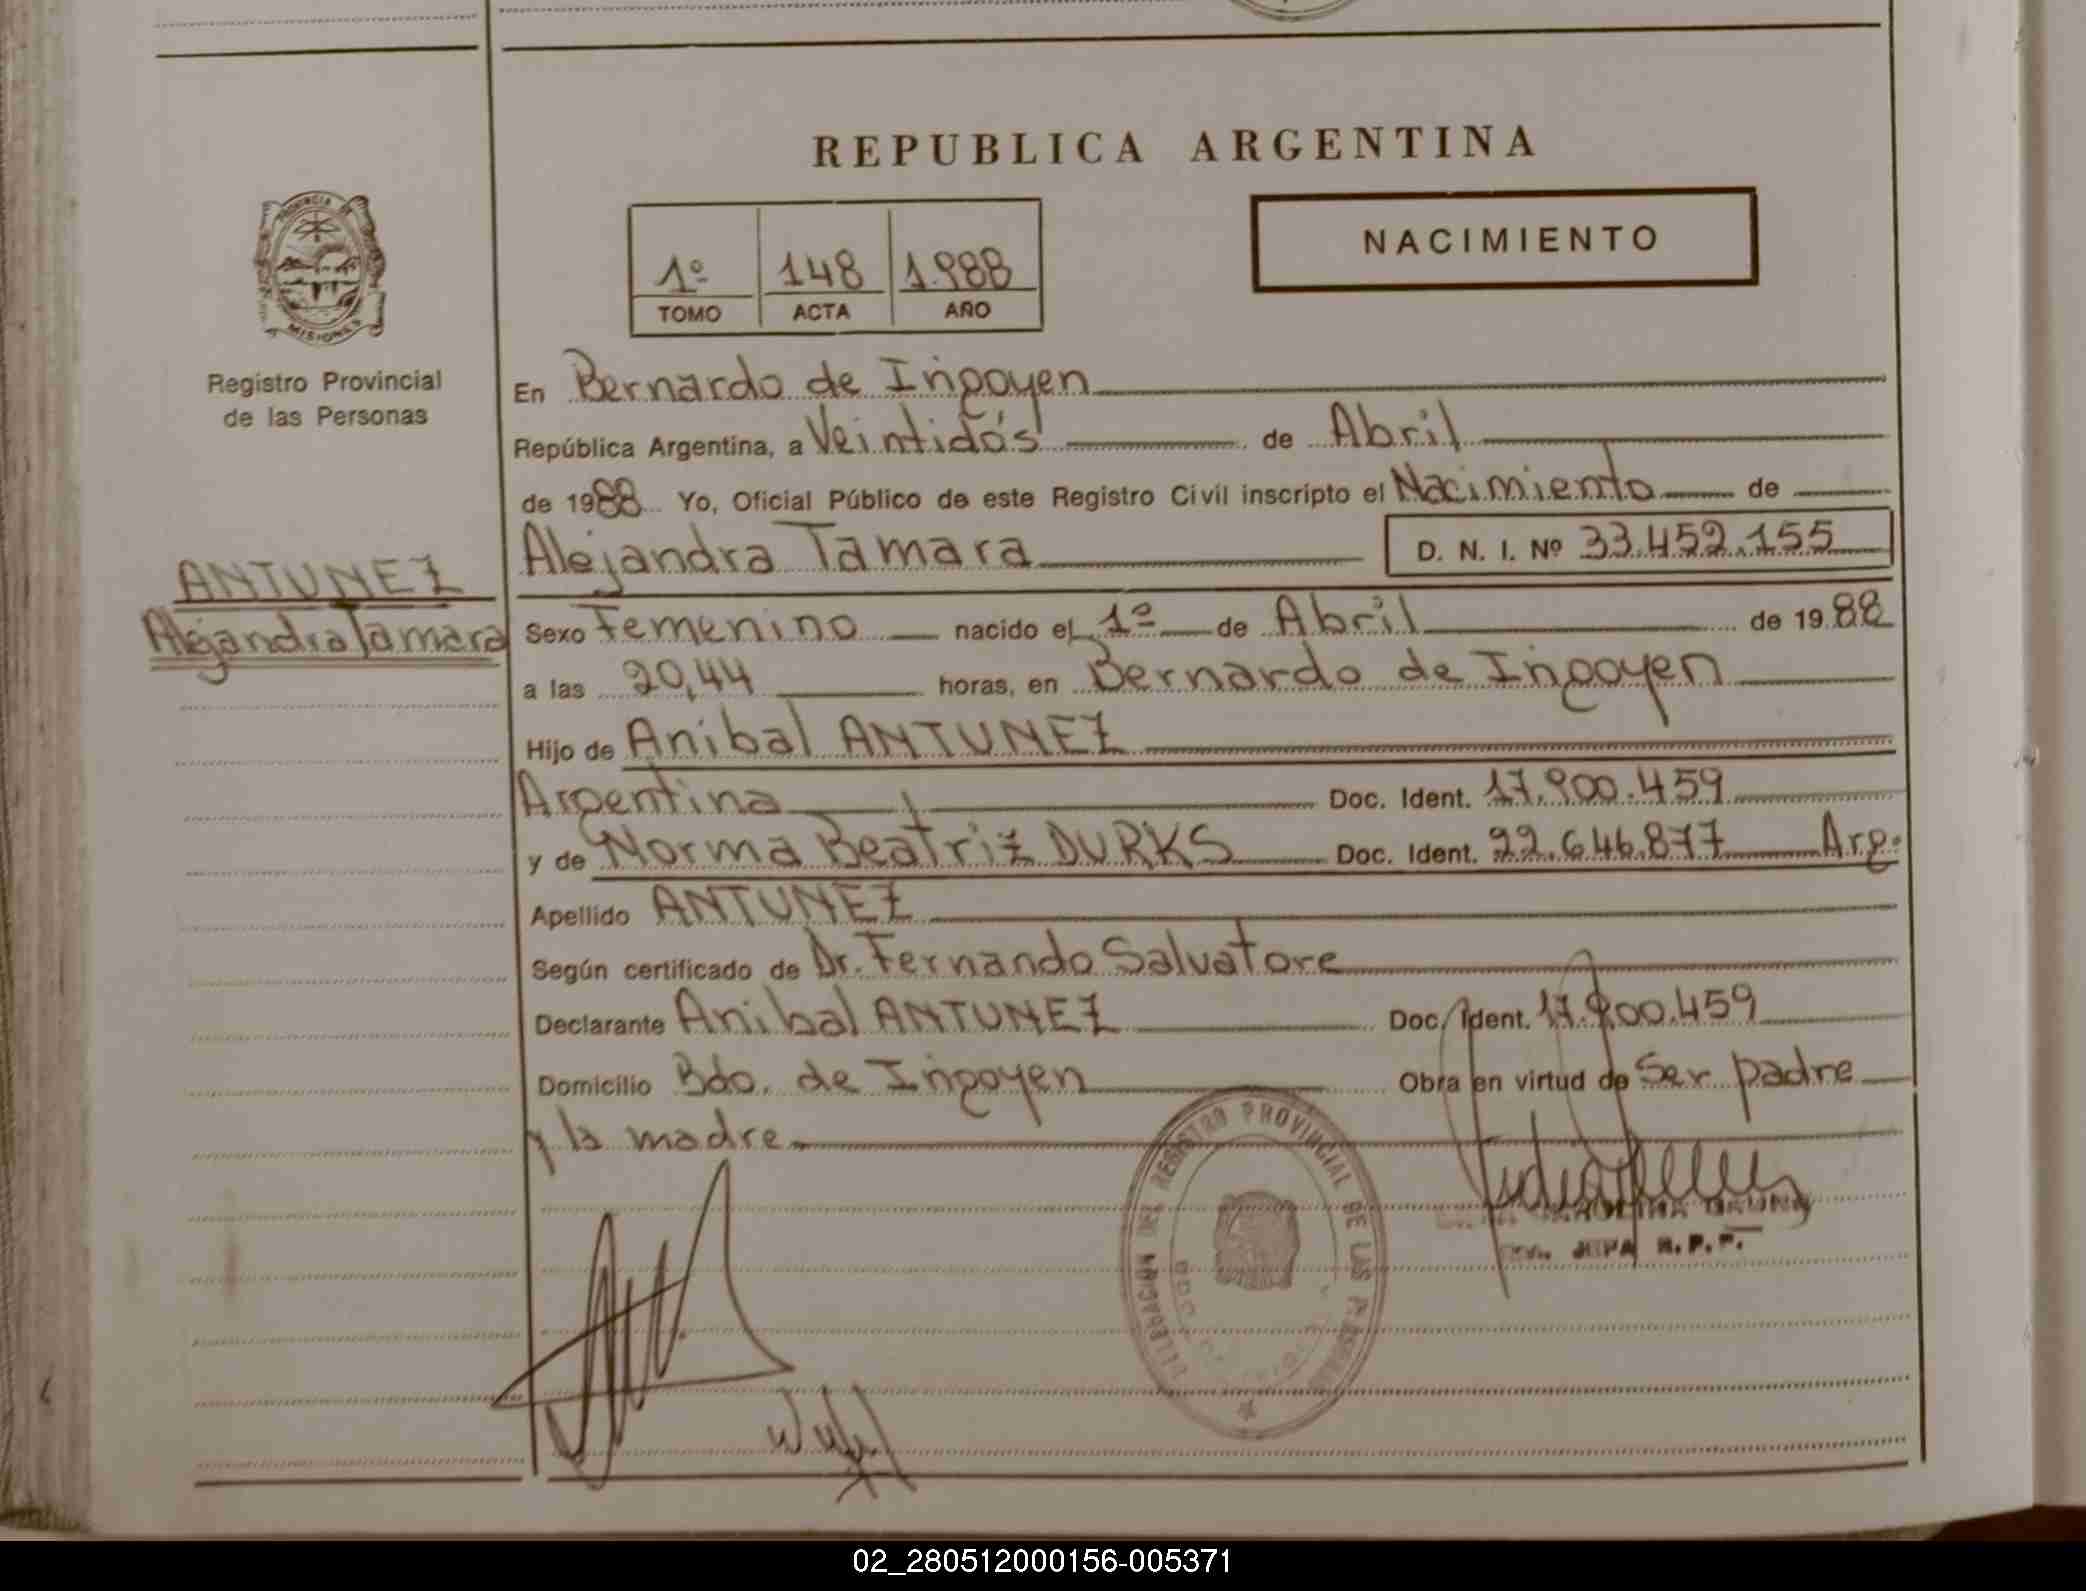 REPUBLICA ARGENTINA
PROVINCIA DE
MISIONES
Registro Provincial
de las Personas
1º 148 1.988
TOMO ACTA AÑO
NACIMIENTO
En Bernardo de Irigoyen
República Argentina, a Veintidós de Abril
de 1988 Yo, Oficial Público de este Registro Civil inscripto el Nacimiento de
Alejandra Tamara D. N. I. Nº 33.452.155
ANTUNEZ
Alejandra Tamara
Sexo Femenino nacido el 1º de Abril de 1988
a las 20,44 horas, en Bernardo de Irigoyen
Hijo de Anibal ANTUNEZ
Argentina Doc. Ident. 17.900.459
y de Norma Beatriz DURKS Doc. Ident. 22.646.877 Arg.
Apellido ANTUNEZ
Según certificado de Dr. Fernando Salvatore
Declarante Anibal ANTUNEZ Doc. Ident. 17.900.459
Domicilio Bdo. de Irigoyen Obra en virtud de Ser padre
y la madre
DELEGACION DEL REGISTRO PROVINCIAL DE LAS PERSONAS
JEFA R.P.P.
02_280512000156-005371